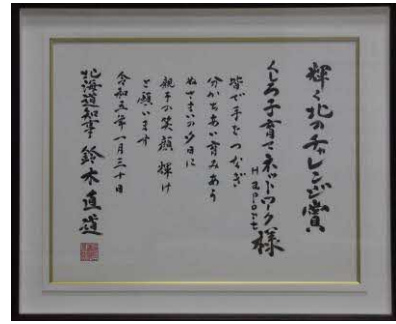 輝く北のチャレンジ賞
くしろ子育てネットワーク
様
皆で手をつなぎ
分かちあい育みあう
ぬさまいの夕日に
親子の笑顔輝け
と願います
令和五年一月三十日
北海道知事 鈴木直道